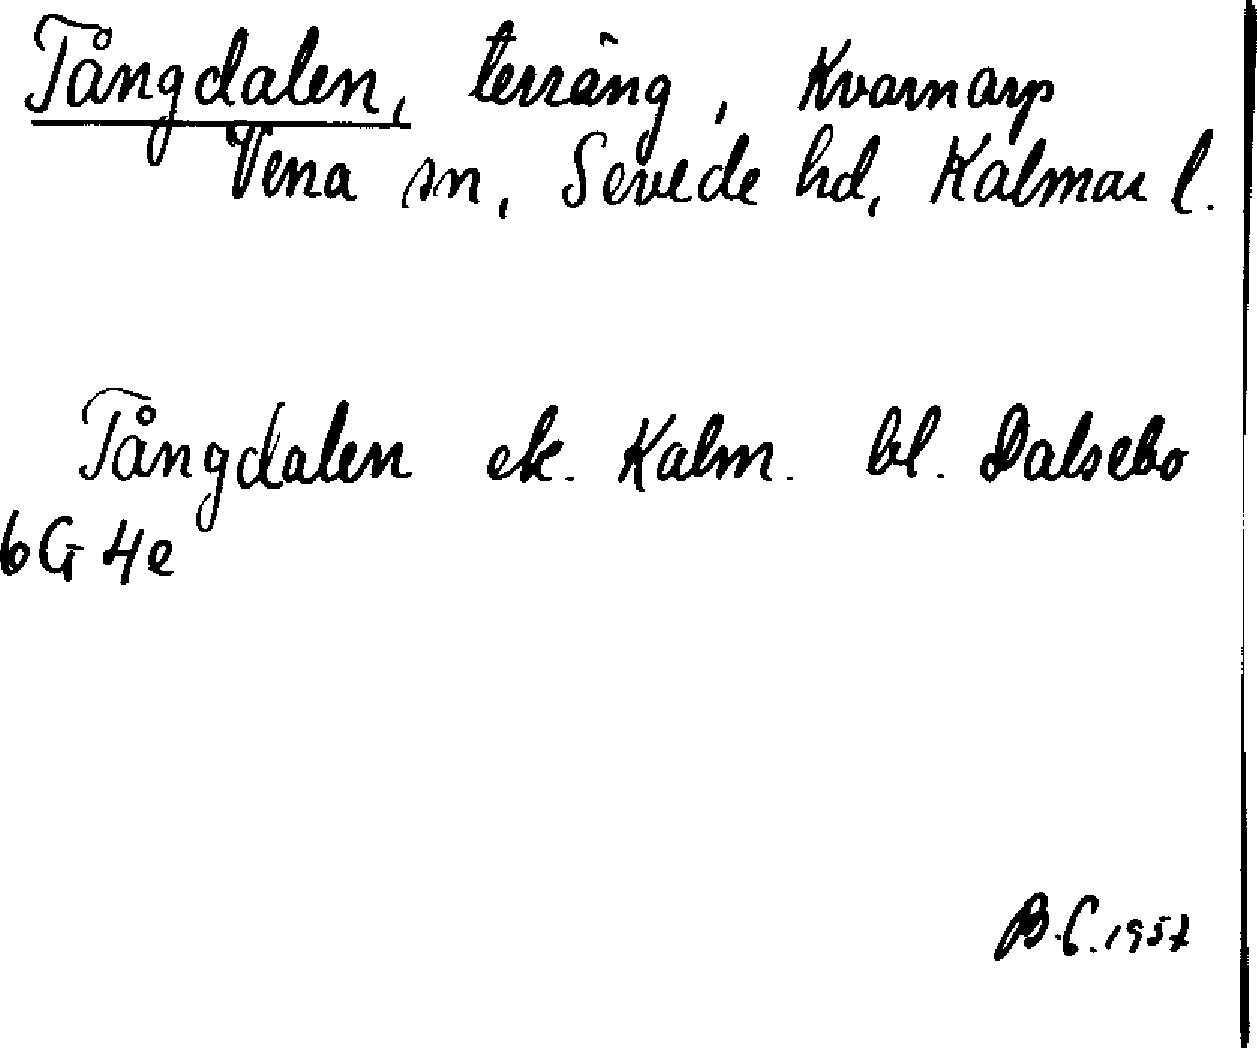 Tångdalen, terräng, Kvarnarp
Vena sn, Sevede hd, Kalmar l.
Tångdalen ek. Kalm. bl. Dalsebo
6G 4e
B.C. 1957